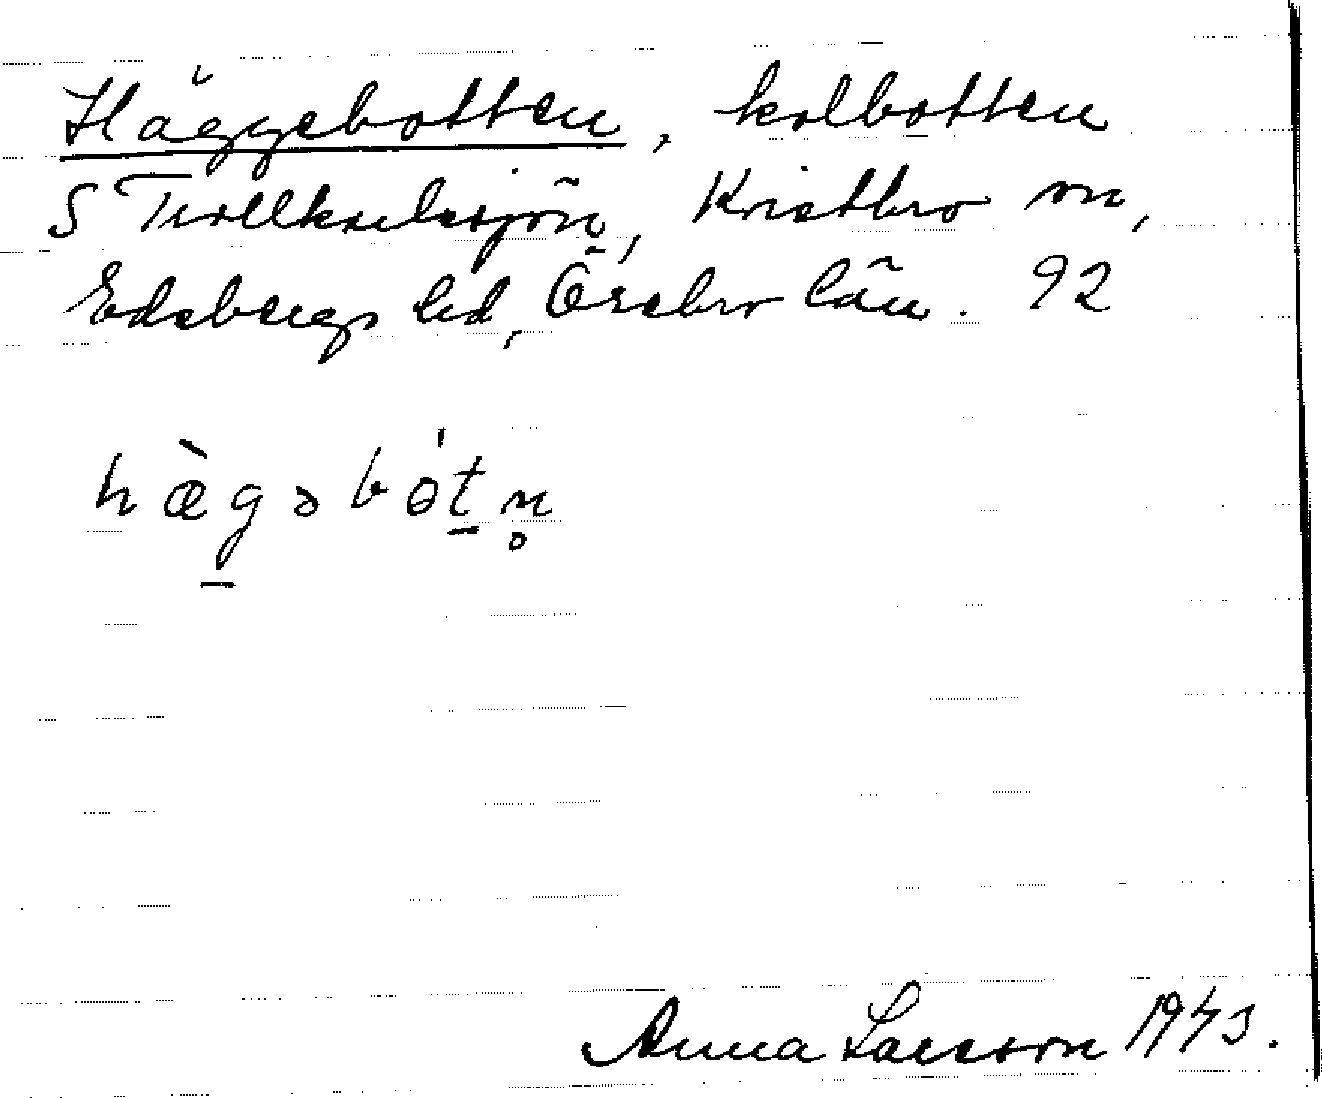 Häggebotten, kolbotten
S Trollkselssjön, Kvistbro sn,
Edsbergs hd, Örebro län. 92
hæ̀gəbɵ́tn̥
Anna Larsson 1943.